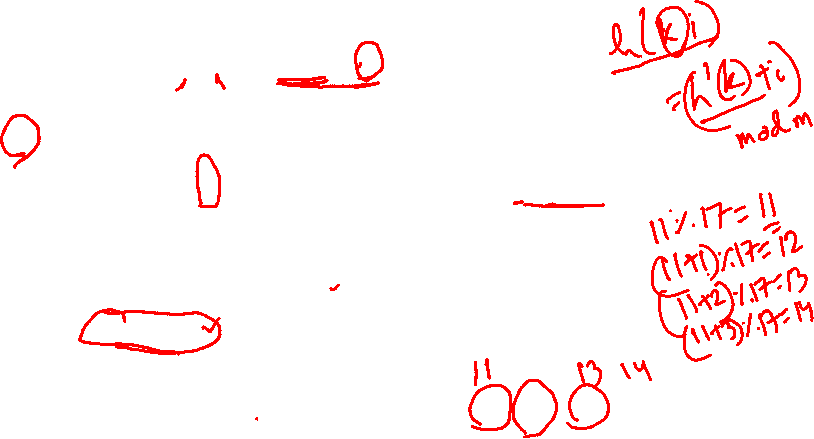 h(k i)
= (h'(k) + i)
mod m
11 % 17 = 11
(11+1) % 17 = 12
(11+2) % 17 = 13
(11+3) % 17 = 14
11 13 14